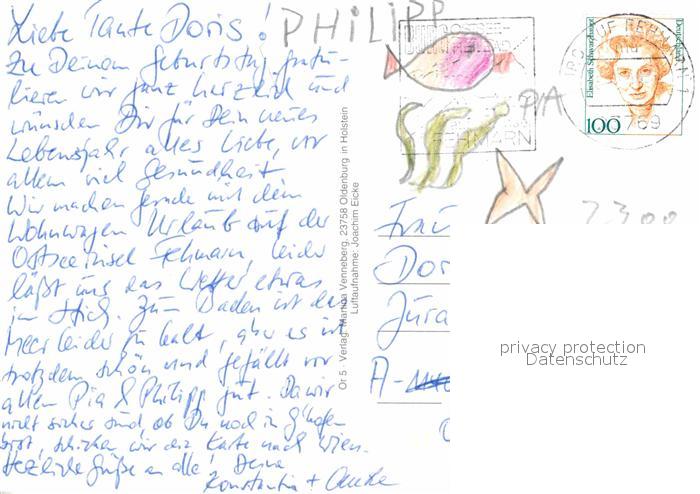 Liebe Tante Doris!
Zu Deinem Geburtstag gratu-
lieren wir ganz herzlich und
wünschen Dir für Dein neues
Lebensjahr alles Liebe, vor
allem viel Gesundheit.
Wir machen gerade mit dem
Wohnwagen Urlaub auf der
Ostseeinsel Fehmarn, leider
läßt uns das Wetter etwas
im Stich. Zum Baden ist das
Meer leider zu kalt, aber es ist
trotzdem schön und gefällt vor
allem Pia & Philipp gut. Da wir
nicht sicher sind, ob Du noch in G'hofen
bist, schicken wir die Karte nach Wien.
Herzliche Grüße an alle! Deine
Konstantin +
PHILIPP
PIA
FEHMARN
Deutschland
Elisabeth Schwarzhaupt
100
BURG AUF FEHMARN 1
23769
2300
Or 5 - Verlag Venneberg, 23758 Oldenburg in Holstein
Luftaufnahme: Joachim Eicke
Frau
Dor
Jura
A-
privacy protection
Datenschutz